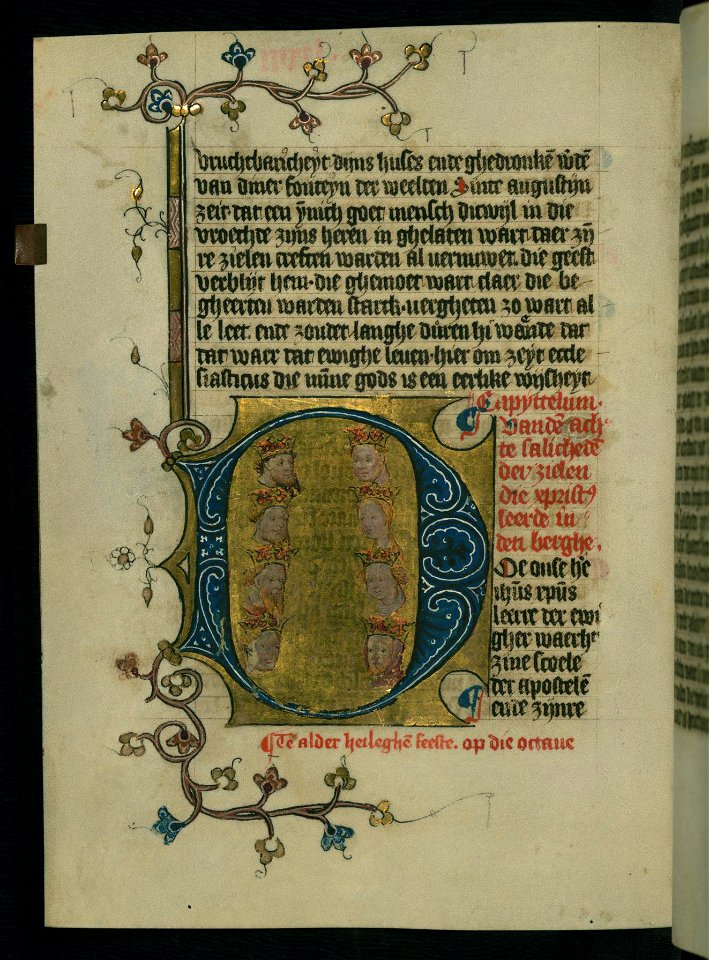 vruchtbaricheyt dijns huses ende ghedronkē w̄dē
van diner fonteyn der weelten Sinte augustijn
zeit dat een ynich goet mensch dicwijl in die
vroechte zijns heren in ghelaten wart daer zij̄
re zielen creften warden al vernuwet. die geest
verblijt hem. die ghemoet wart claer die be
gheerten warden starck. vergheten zo wart al
le leet. ende zonder langhe duren hi wānde dat
dat waer dat ewighe leuen. hier om zeyt eccle
siasticus die mīne gods is een eerlike wijsheyt
Capyttelum.
Vandē ach
te salichedē
der zielen
die xpristꝰ
leerde in
den berghe.
Doe onse h'e
ihūs xpūs
leerre der ewi
gher waerh'
zine scoele
der apostelē
ende zijnre
Te alder heileghē feeste. op die octaue